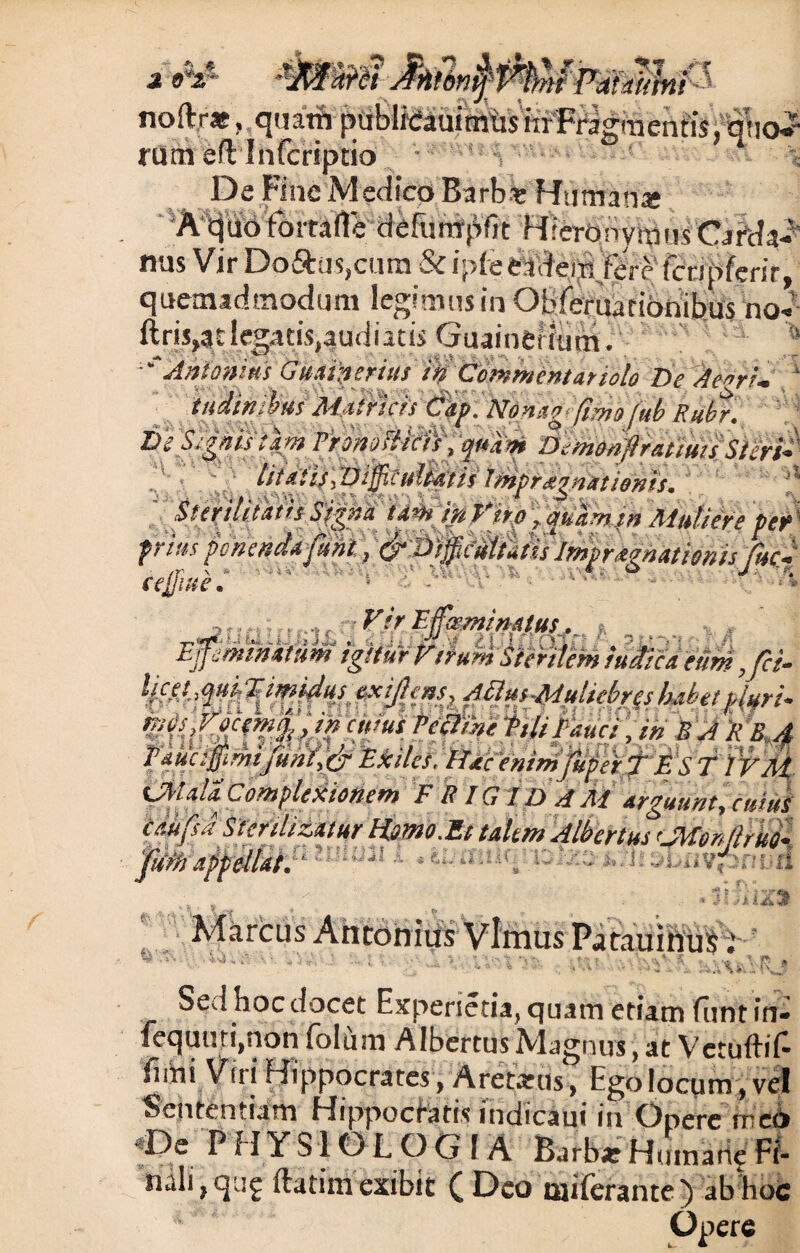 202 Marci Antonij Vlmi Patauini
noſtræ, quam publicauimus in Fragmentis, quo-
rum eſt Inſcriptio
De Fine Medico Barbæ Humanæ
A quo fortaſſe deſumpſit Hieronymus Carda-
nus Vir Doctus, cum & ipſe eadem ferè ſcripſerit,
quemadmodum legimus in Obſeruationibus no-
ſtris, at legatis, audiatis Guainerium.
Antonius Guainerius in Commentariolo De Aegri-
tudinibus Matricis Cap. Nonageſimo ſub Rubr.
De Signis tàm Pronoſticis, quàm Demonſtratiuis Steri-
litatis, Difficultatis Imprægnationis.
Sterilitatis Signa tàm in Viro, quàm in Muliere per
prius ponenda ſunt, & Difficultatis Imprægnationis ſuc-
ceſſiuè.
Vir Effœminatus.
Effeminatum igitur Virum Sterilem iudica eum, ſci-
licet, qui Timidus exiſtens, Actus Muliebres habet pluri-
mos, Vocemq;, in cuius Pectine Pili Pauci, in BARBA
Pauciſſimi ſunt, & Exiles. Hæc enim ſuper TESTIVM
Mala Complexionem FRIGIDAM arguunt, cuius
cauſa Sterilizatur Homo. Et talem Albertus Monſtruo-
ſum appellat.
Marcus Antonius Vlmus Patauinus:
Sed hoc docet Experiẽtia, quam etiam ſunt in-
ſequuti, non ſolùm Albertus Magnus, at Vetuſtiſ-
ſimi Viri Hippocrates, Aretæus, Ego locum, vel
Sententiam Hippocratis indicaui in Opere meo
De PHYSIOLOGIA Barbæ Humanę Fi-
nali, quę ſtatim exibit (Deo miſerante) ab hoc
Opere